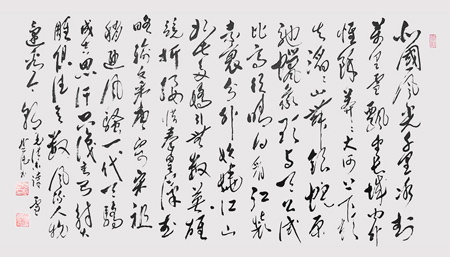 北國風光千里冰封
萬里雪飄望長城內外
惟餘莽莽大河上下頓
失滔滔山舞銀蛇原
馳蠟象欲與天公試
比高須晴日看紅裝
素裹分外妖嬈江山
如此多嬌引無數英雄
競折腰惜秦皇漢武
略輸文采唐宗宋祖
稍遜風騷一代天驕
成吉思汗只識彎弓射大
雕俱往矣數風流人物
還看今朝
毛澤東詩雪